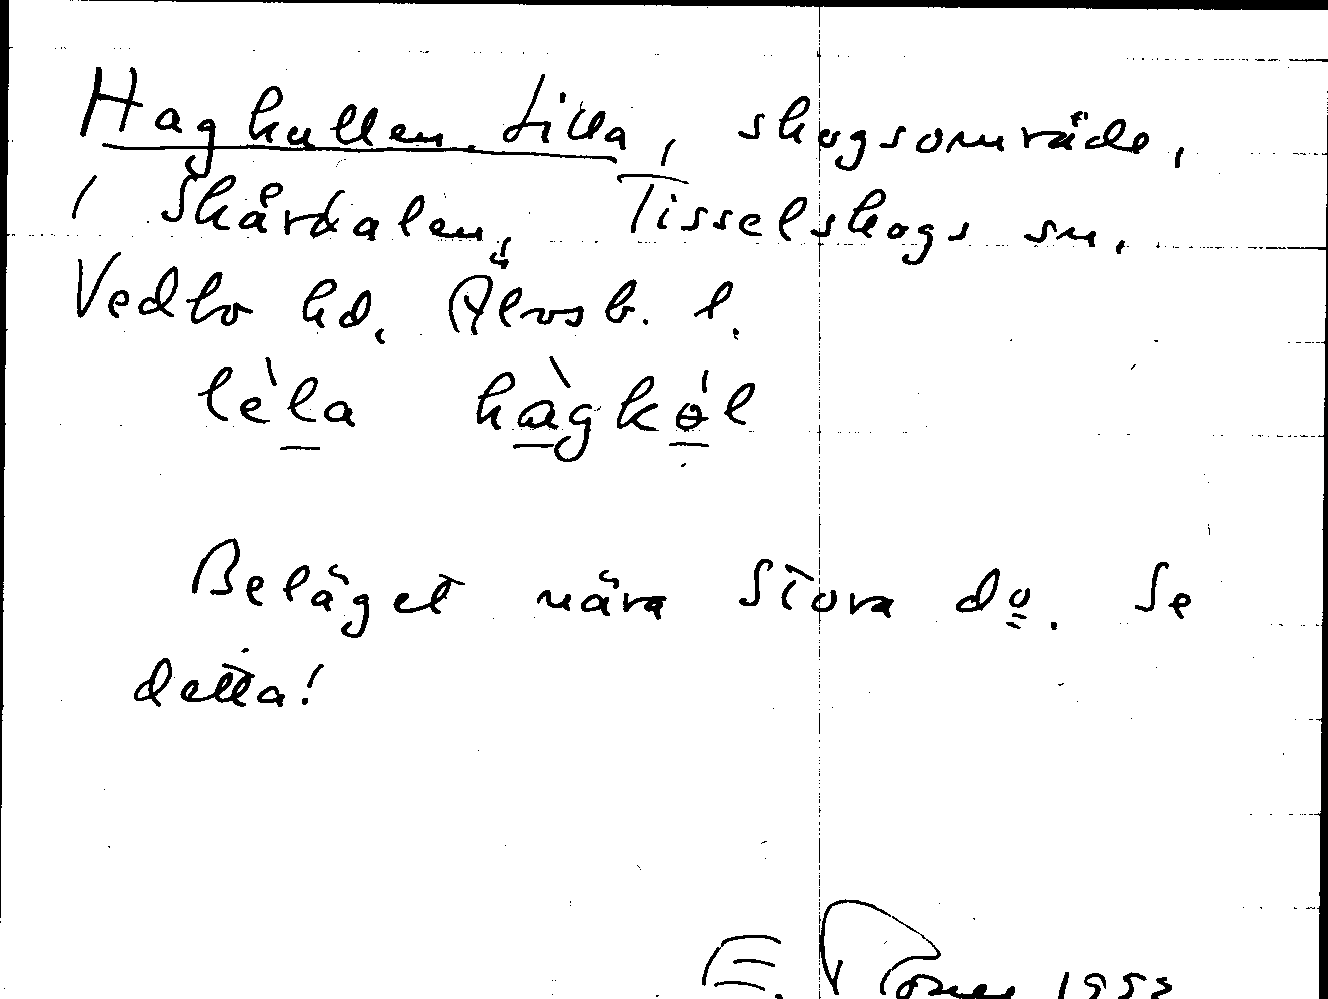 Hagkullen. Lilla, skogsområde,
i Skårdalen, Tisselskogs sn.
Vedbo hd. Älvsb. l.
lèla hàgkól
Beläget nära Stora do. Se
detta!
E. 1953